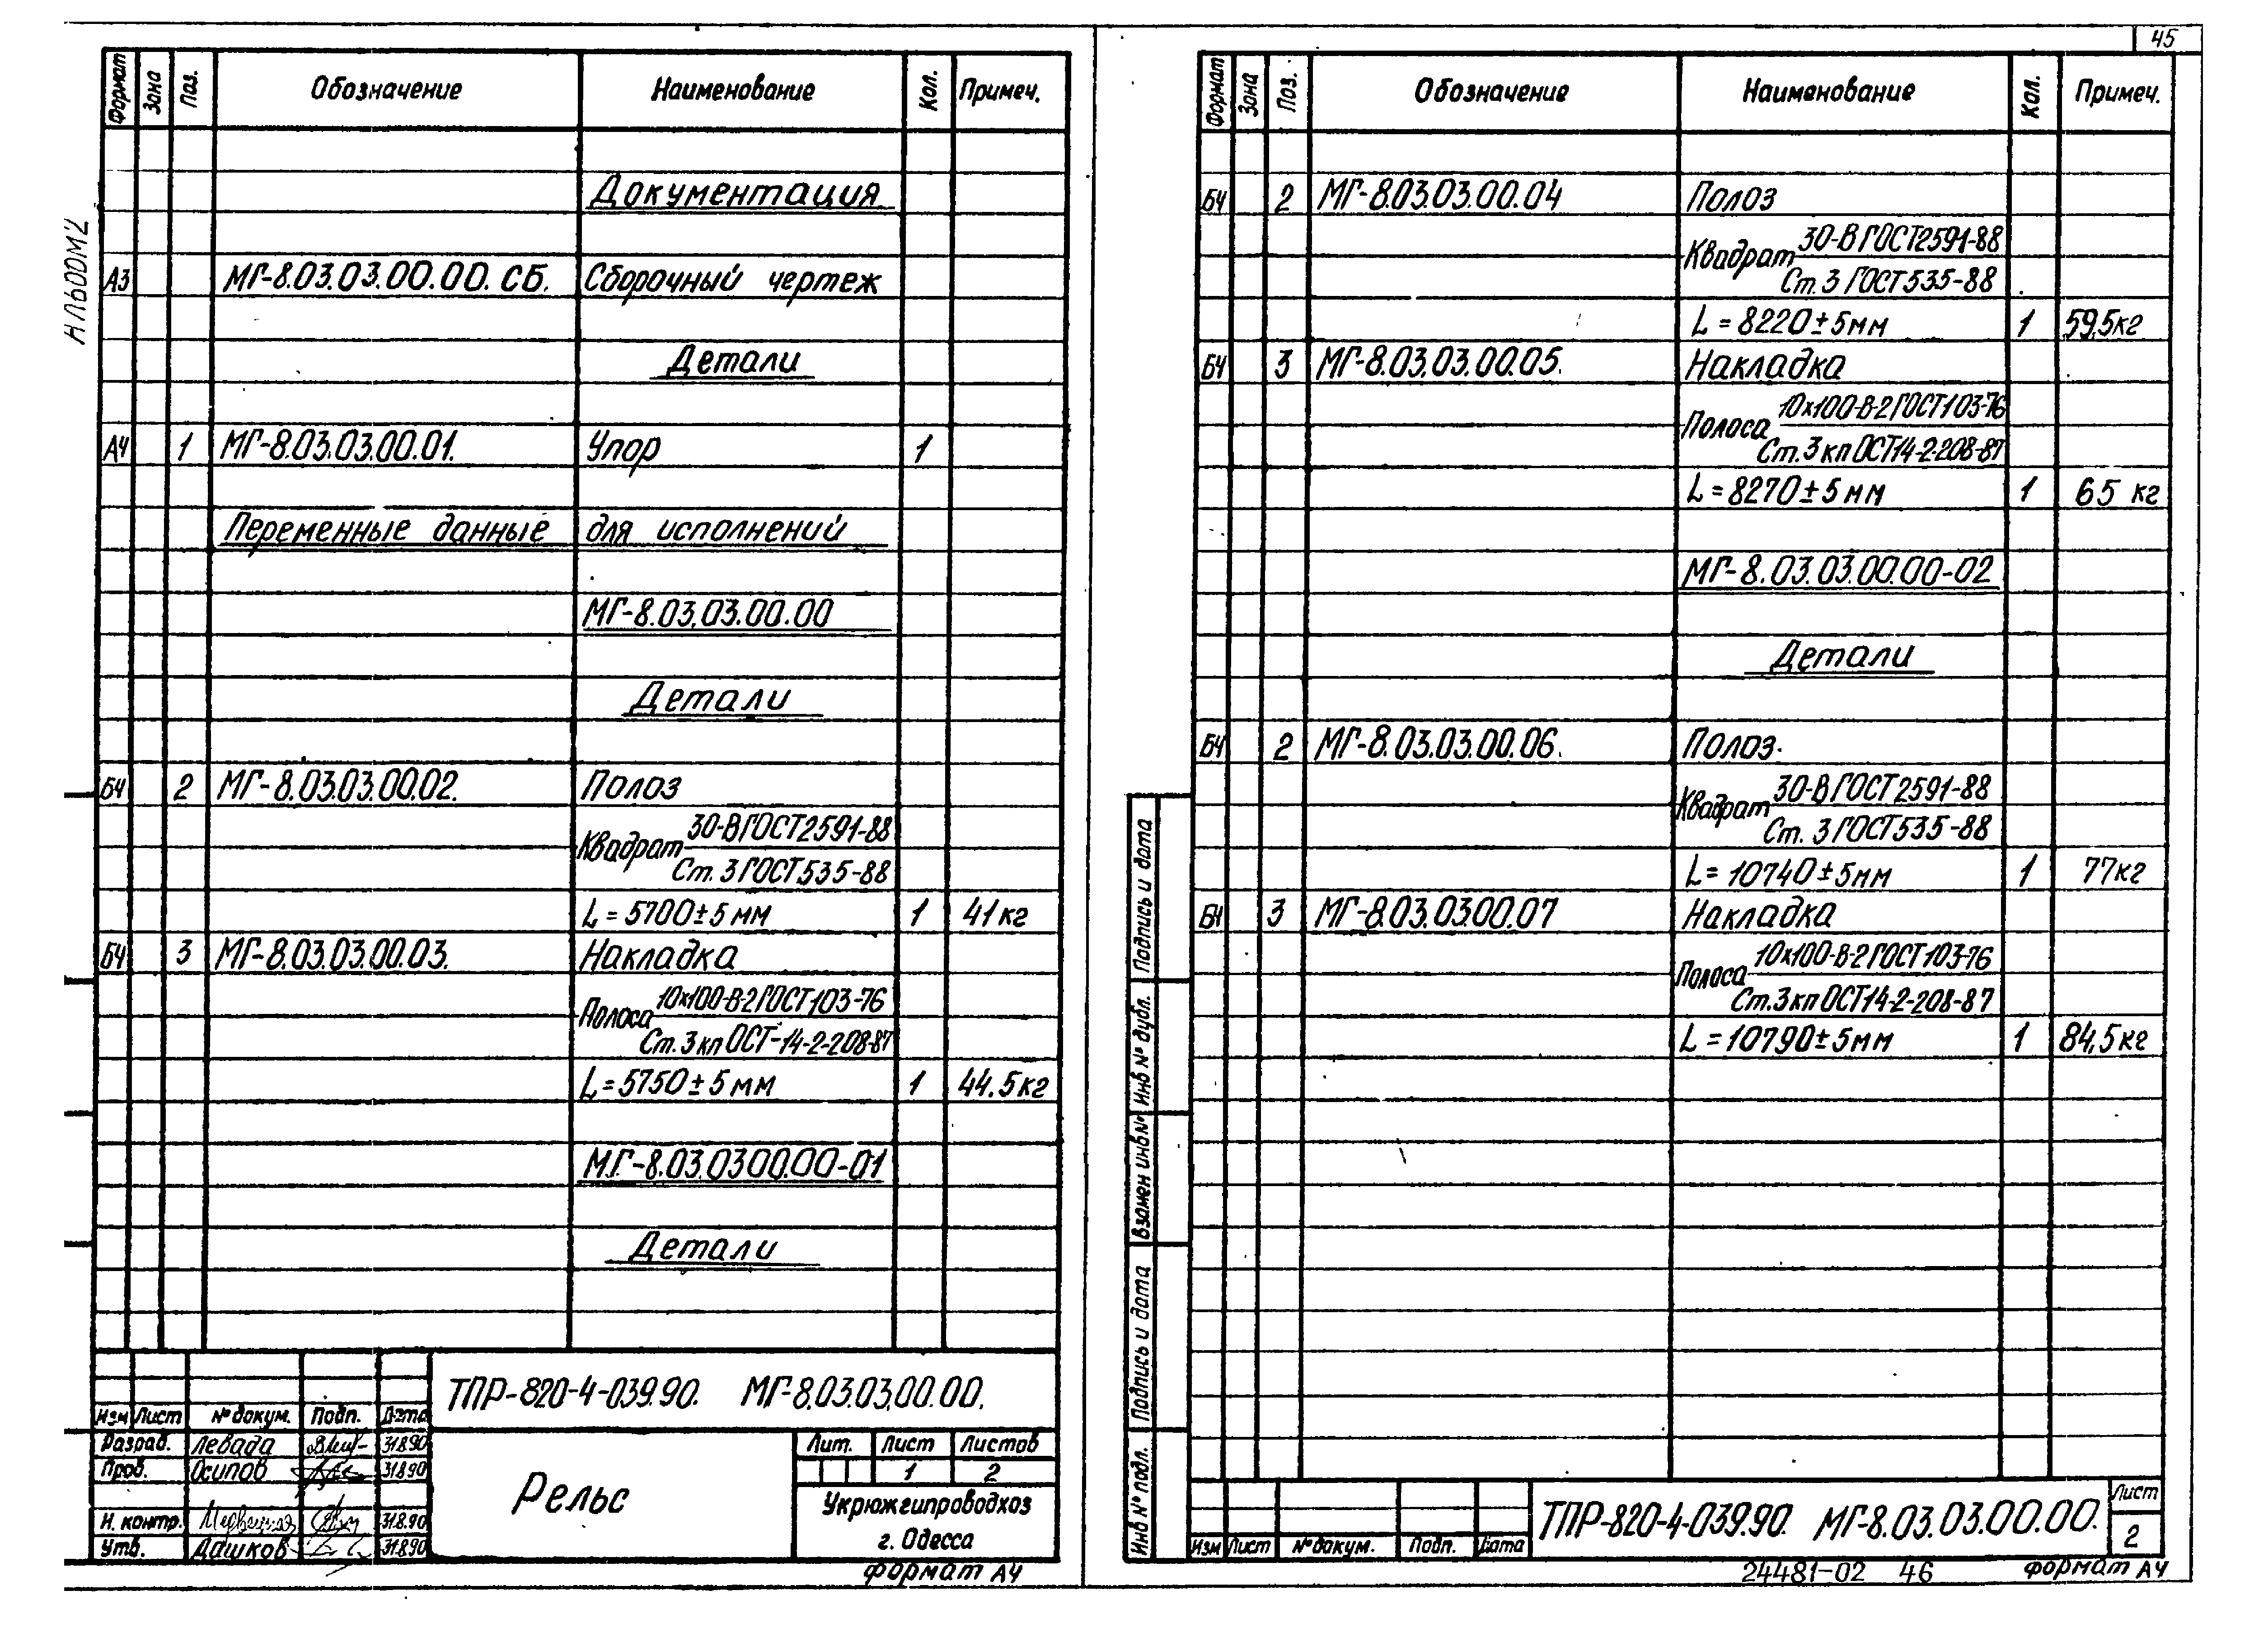 Альбом 2
Формат Зона Поз. Обозначение Наименование Кол. Примеч.
Документация
А3 МГ-8.03.03.00.00. СБ. Сборочный чертеж
Детали
А4 1 МГ-8.03.03.00.01. Упор 1
Переменные данные для исполнений
МГ-8.03.03.00.00
Детали
БЧ 2 МГ-8.03.03.00.02. Полоз
30-В ГОСТ 2591-88
Квадрат
Ст. 3 ГОСТ 535-88
L = 5700 ± 5 мм 1 41 кг
БЧ 3 МГ-8.03.03.00.03. Накладка
10х100-В-2 ГОСТ 103-76
Полоса
Ст. 3 кп ОСТ-14-2-208-87
L = 5750 ± 5 мм 1 44.5 кг
МГ-8.03.0300.00-01
Детали
ТПР-820-4-039.90. МГ-8.03.03.00.00.
Изм Лист № докум. Подп. Дата
Разраб. Левада 31.8.90
Пров. Осипов 31.8.90
Н. контр. 31.8.90
Утв. Дашков 31.8.90
Рельс
Лит. Лист Листов
1 2
Укрюжгипроводхоз
г. Одесса
Формат А4
45
Формат Зона Поз. Обозначение Наименование Кол. Примеч.
БЧ 2 МГ-8.03.03.00.04 Полоз
30-В ГОСТ 2591-88
Квадрат
Ст. 3 ГОСТ 535-88
L = 8220 ± 5 мм 1 59,5 кг
БЧ 3 МГ-8.03.03.00.05. Накладка
10х100-В-2 ГОСТ 103-76
Полоса
Ст. 3 кп ОСТ 14-2-208-87
L = 8270 ± 5 мм 1 65 кг
МГ-8.03.03.00.00-02
Детали
БЧ 2 МГ-8.03.03.00.06. Полоз.
30-В ГОСТ 2591-88
Квадрат
Ст. 3 ГОСТ 535-88
L = 10740 ± 5 мм 1 77 кг
БЧ 3 МГ-8.03.0300.07 Накладка
10х100-В-2 ГОСТ 103-76
Полоса
Ст. 3 кп ОСТ 14-2-208-87
L = 10790 ± 5 мм 1 84,5 кг
Подпись и дата
Инв № дубл.
Взамен инв №
Подпись и дата
Инв № подл.
Изм Лист № докум. Подп. Дата
ТПР-820-4-039.90. МГ-8.03.03.00.00.
Лист
2
24481-02 46 Формат А4